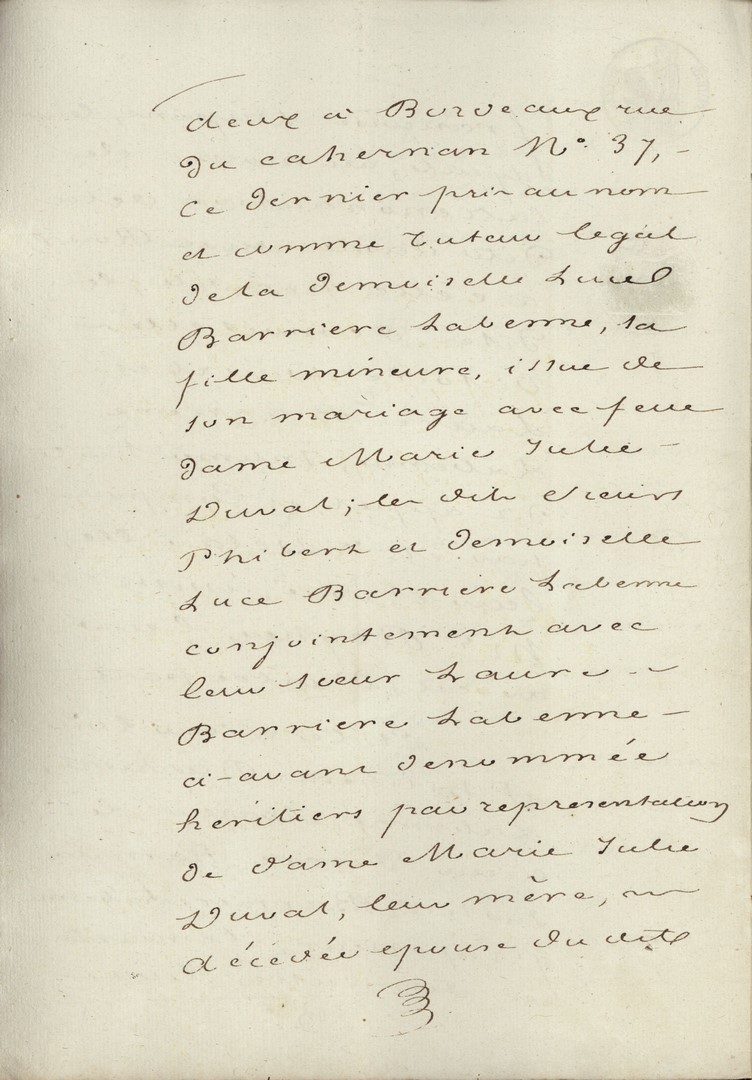 deux à Bordeaux rue
du cahernan N° 37, -
Ce dernier pris au nom
et comme tuteur légal
de la demoiselle Luce
Barriere Labenne, sa
fille mineure, issue de
son mariage avec feue
dame Marie Julie -
Duval ; les dits sieurs
Phibert et demoiselle
Luce Barriere Labenne
conjointement avec
leur soeur Laure - -
Barriere Labenne -
ci-avant denommée
héritiers par representation
de dame Marie Julie
Duval, leur mère,
décédée epouse du dit